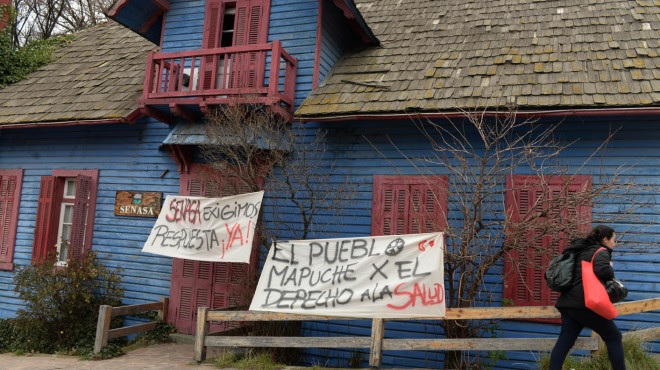 SENASA
SENASA EXIGIMOS
RESPUESTA ¡YA!
EL PUEBLO
MAPUCHE X EL
DERECHO A LA SALUD